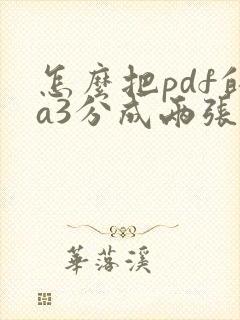 怎麼把pdf
a3分成兩張
華落溪